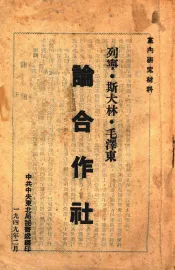 黨內研究材料
列寧·斯大林·毛澤東
論合作社
中共中央東北局秘書處編印
一九四九年二月